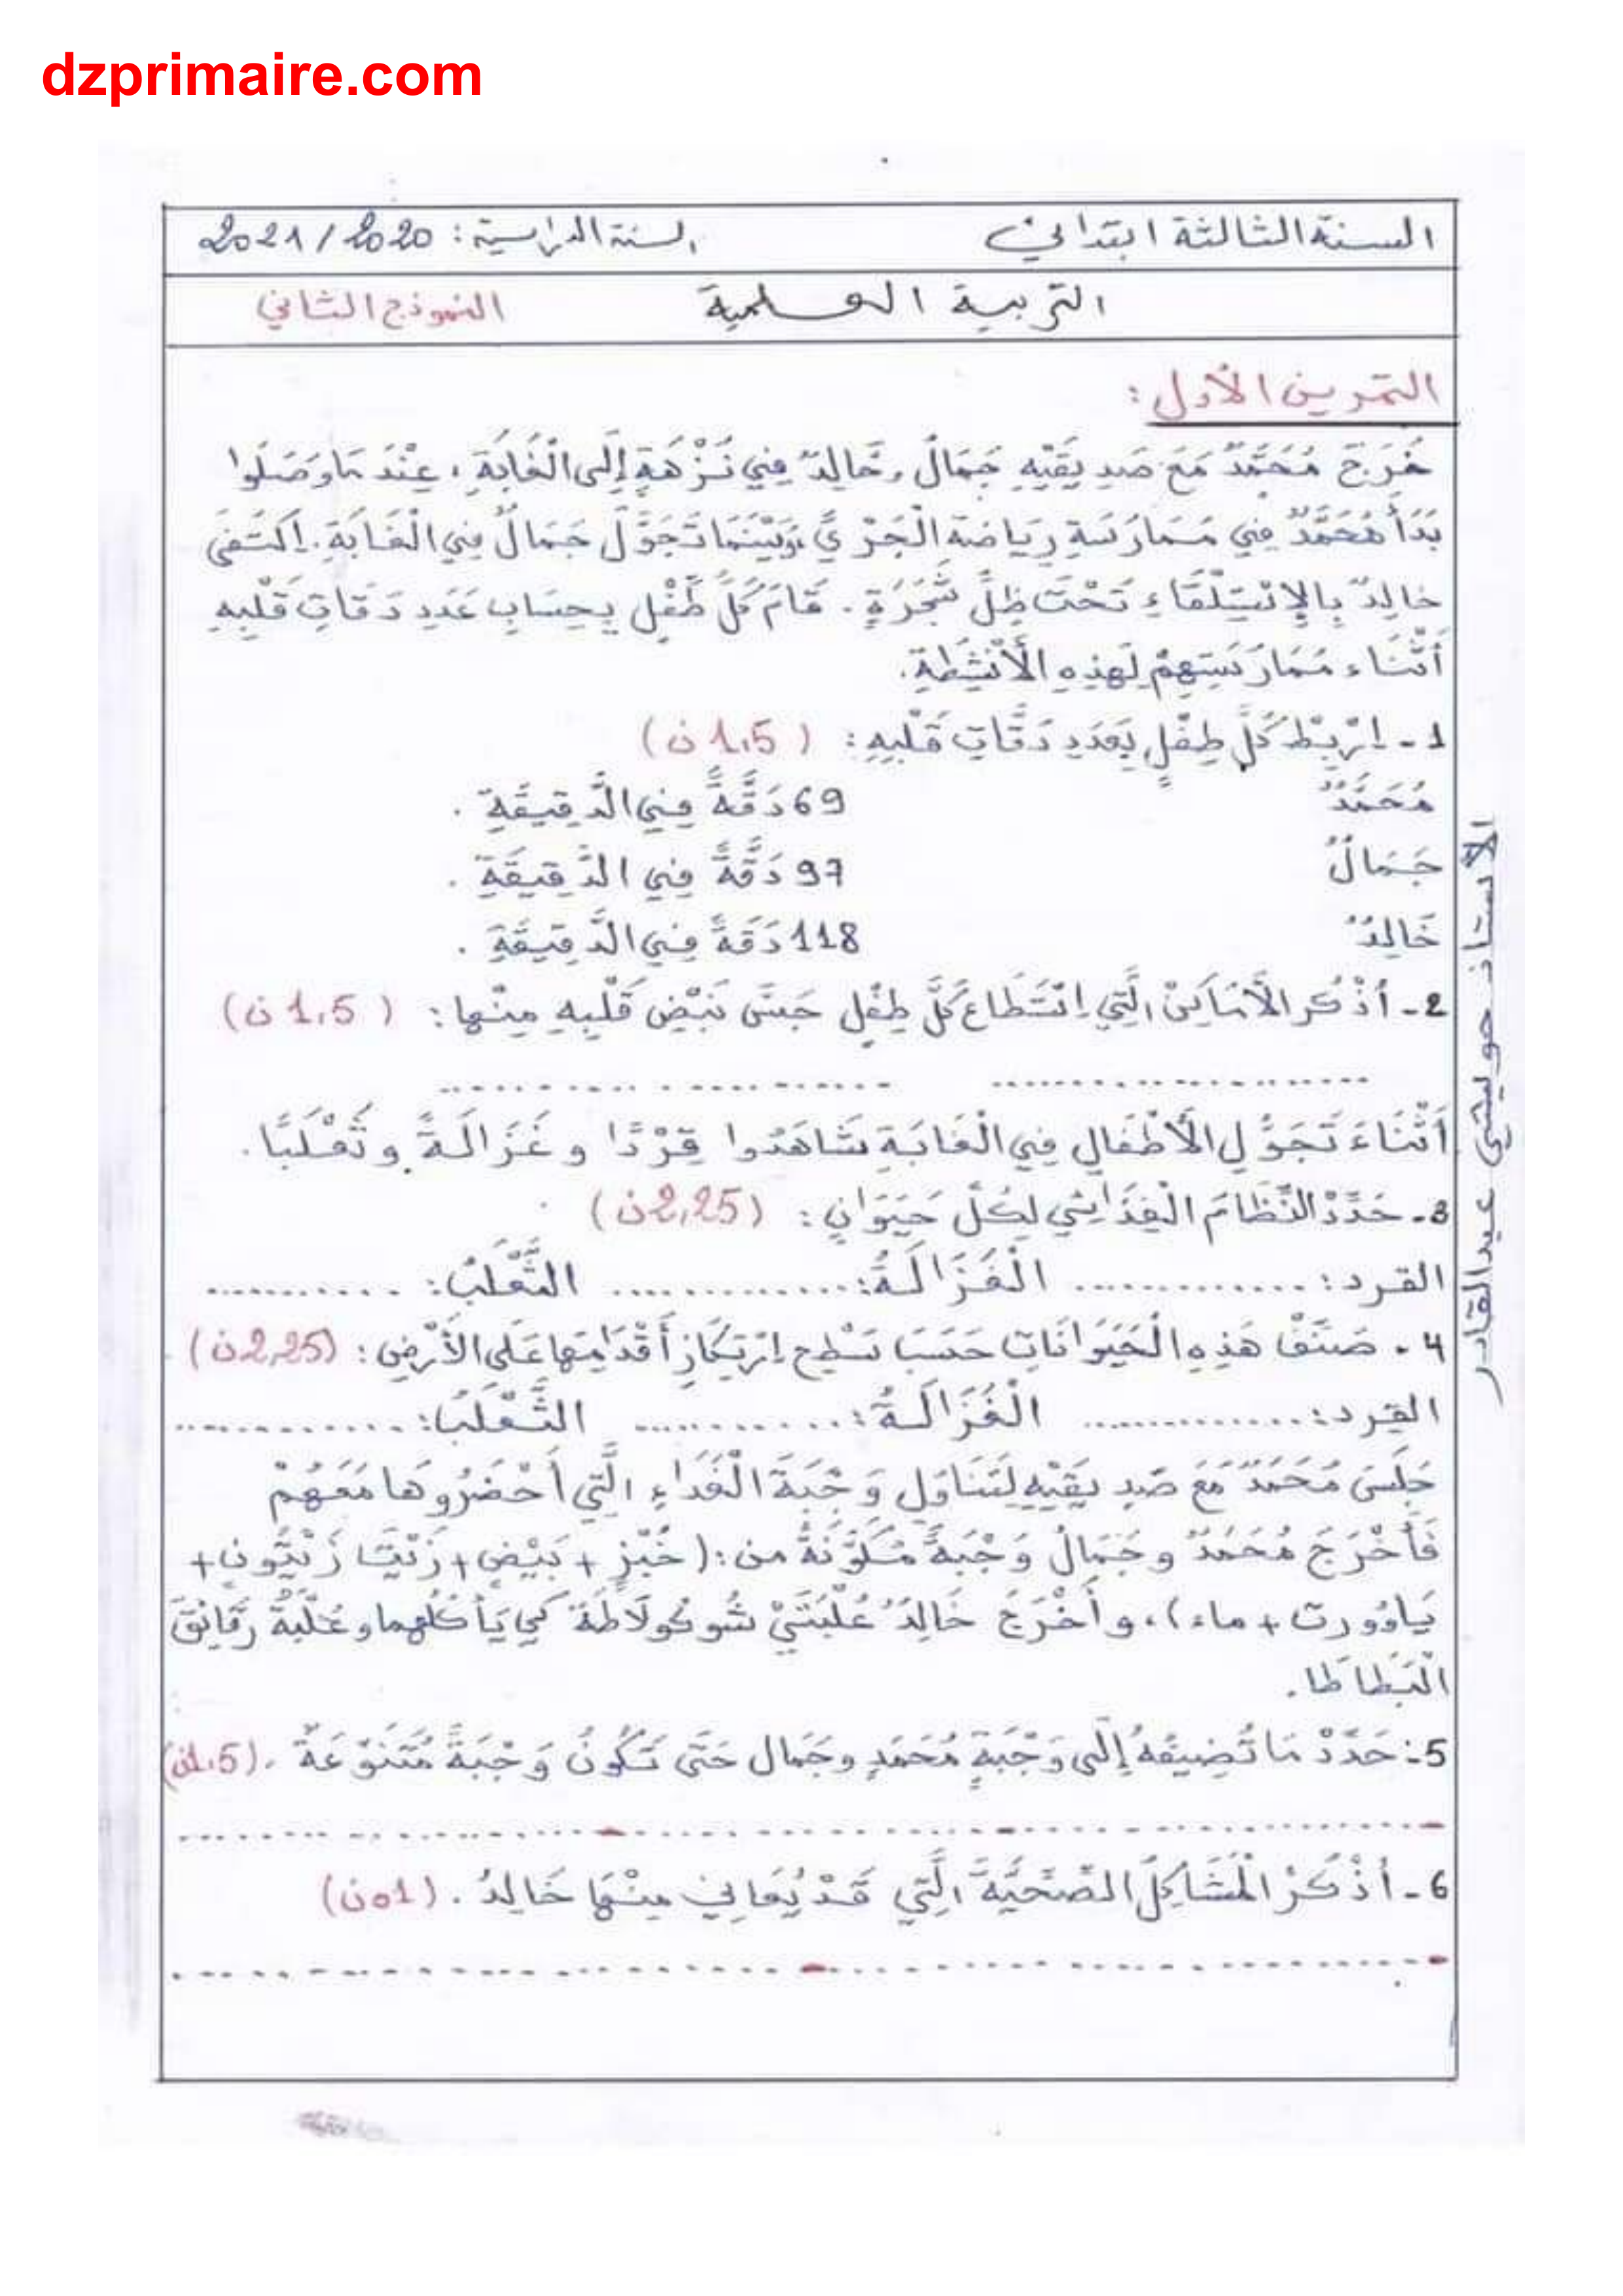 dzprimaire.com
السنة الثالثة ابتدائي السنة الدراسية: 2021/2020
التربية العلمية النموذج الثاني
التمرين الأول:
خَرَجَ مُحَمَّدٌ مَعَ صَدِيقَيْهِ جَمَالٌ وَخَالِدٌ فِي نُزْهَةٍ إِلَى الْغَابَةِ، عِنْدَمَا وَصَلُوا
بَدَأَ مُحَمَّدٌ فِي مُمَارَسَةِ رِيَاضَةِ الْجَرْيِ، وَبَيْنَمَا تَجَوَّلَ جَمَالٌ فِي الْغَابَةِ. اِكْتَفَى
خَالِدٌ بِالإِسْتِلْقَاءِ تَحْتَ ظِلِّ شَجَرَةٍ. قَامَ كُلُّ طِفْلٍ بِحِسَابِ عَدَدِ دَقَاتِ قَلْبِهِ
أَثْنَاءَ مُمَارَسَتِهِمْ لِهَذِهِ الأَنْشِطَةِ.
1 - اِرْبِطْ كُلَّ طِفْلٍ بِعَدَدِ دَقَّاتِ قَلْبِهِ: (1,5 ن)
مُحَمَّدٌ 69 دَقَّةً فِي الدَّقِيقَةِ.
جَمَالٌ 97 دَقَّةً فِي الدَّقِيقَةِ.
خَالِدٌ 118 دَقَةً فِي الدَّقِيقَةِ.
2 - أُذْكُرِ الأَمَاكِنَ الَّتِي اِسْتَطَاعَ كُلُّ طِفْلٍ جَسَّ نَبْضِ قَلْبِهِ مِنْهَا: (1,5 ن)
........................ ........................
أَثْنَاءَ تَجَوُّلِ الأَطْفَالِ فِي الْغَابَةِ شَاهَدُوا قِرْدًا و غَزَالَةً و ثَعْلَبًا.
3 - حَدِّدْ النِّظَامَ الْغِذَائِي لِكُلِّ حَيَوَانٍ: (2,25 ن)
القرد: .............. الْغَزَالَةُ: .............. الثَّعْلَبُ: ...........
4 - صَنِّفْ هَذِهِ الْحَيَوَانَاتِ حَسَبَ سَطْحِ اِرْتِكَازِ أَقْدَامِهَا عَلَى الأَرْضِ: (2,25 ن)
القِرد: .............. الْغَزَالَةُ: ............ الثَّعْلَبُ: ............
جَلَسَ مُحَمَدٌ مَعَ صَدِيقَيْهِ لِتَنَاوُلِ وَجْبَةِ الْغَدَاءِ الَّتِي أَحْضَرُوهَا مَعَهُمْ
فَأَخْرَجَ مُحَمَّدٌ و جَمَالٌ وَجْبَةً مُكَوَّنَةً من: (خُبْزٍ + بَيْضٍ + زَيْتَ زَيْتُونٍ +
يَاوُورت + ماء)، و أَخْرَجَ خَالِدٌ عُلْبَتَيْ شُوكُولَاطَة كَي يَأْكُلَهما و عُلْبَةُ رَقَائِقَ
الْبَطَاطَا.
5 - حَدِّدْ مَا تُضِيفُهُ إِلَى وَجْبَةِ مُحَمَدٍ و جَمَال حَتَّى تَكُونُ وَجْبَةً مُتَنَوِّعَةً. (1,5 ن)
- .................... - .................... - ....................
6 - أُذْكُرْ الْمَشَاكِلَ الصِّحِّيَّةَ الَّتِي قَدْ يُعَانِي مِنْهَا خَالِدٌ. (01 ن)
- .............................. - ..............................
الأستاذ حويشي عبدالقادر